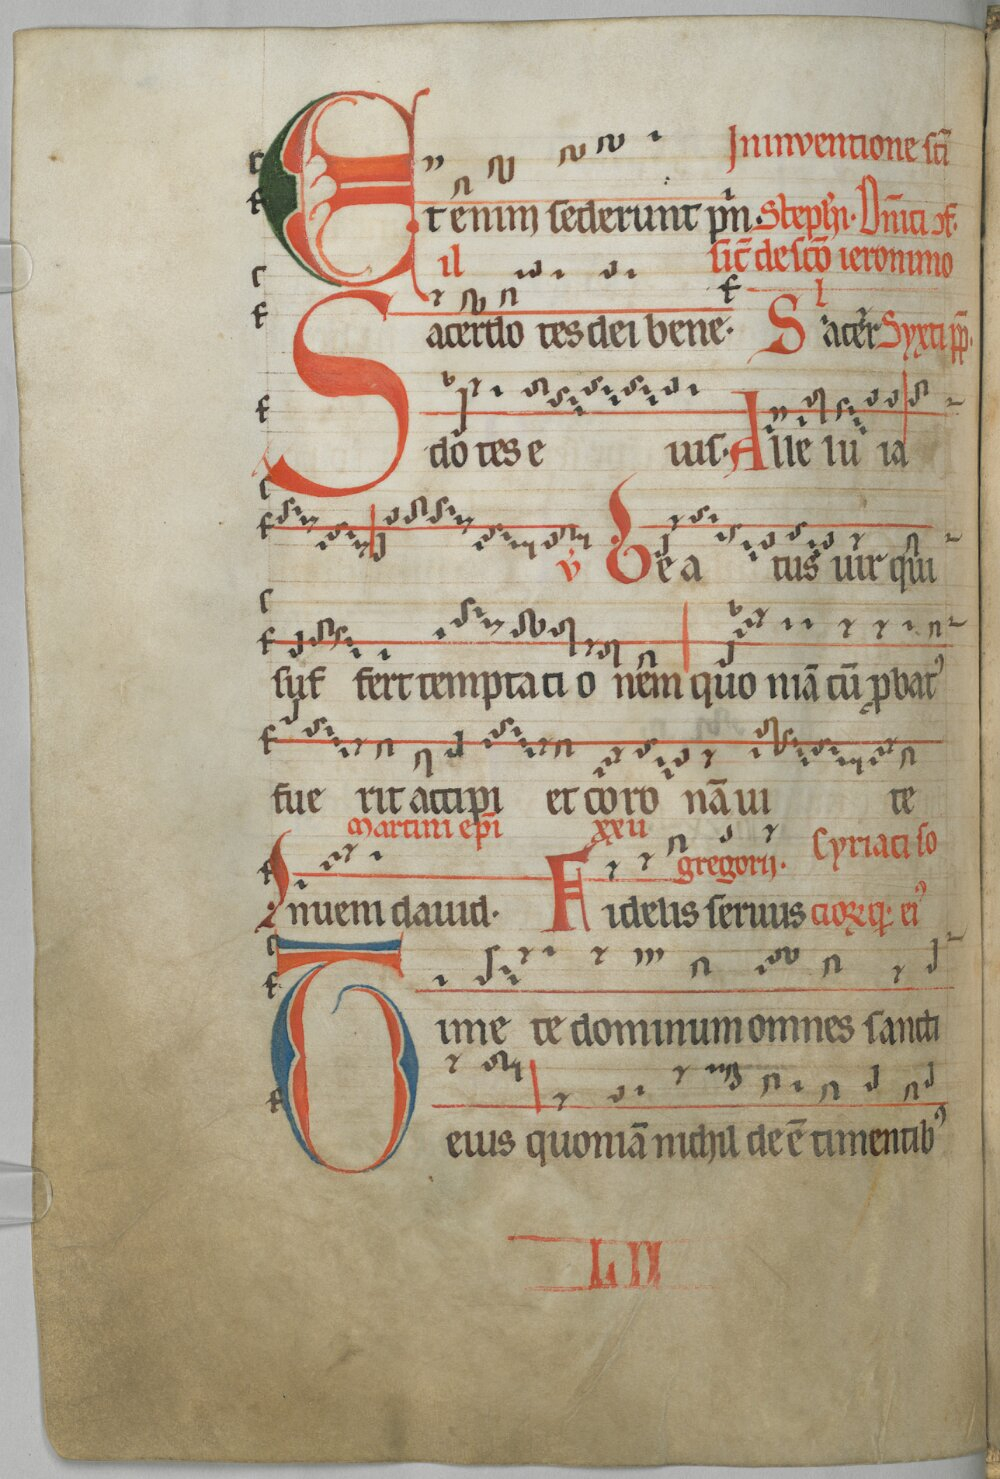 In inventione sc̄i
Et enim sederunt pn̄. Stepħi. Dn̄ica
il sic̄ de sc̄o ieronimo
Sacerdo tes dei bene. Sacer Syxti pp̄.
do tes e ius. Alle lu ia
v̄ Be a tus uir qui
suf fert tempta ti o nem quo niā cū ꝓbatꝰ
fue rit accipi et co ro nā ui te
Martini ep̄i xxii Cyriaci so
gregorii.
Inueni dauid. Fidelis seruus cioꝝq; eiꝰ
Time te dominum omnes sancti
eius quoniā nichil de ē timentibꝰ
LII